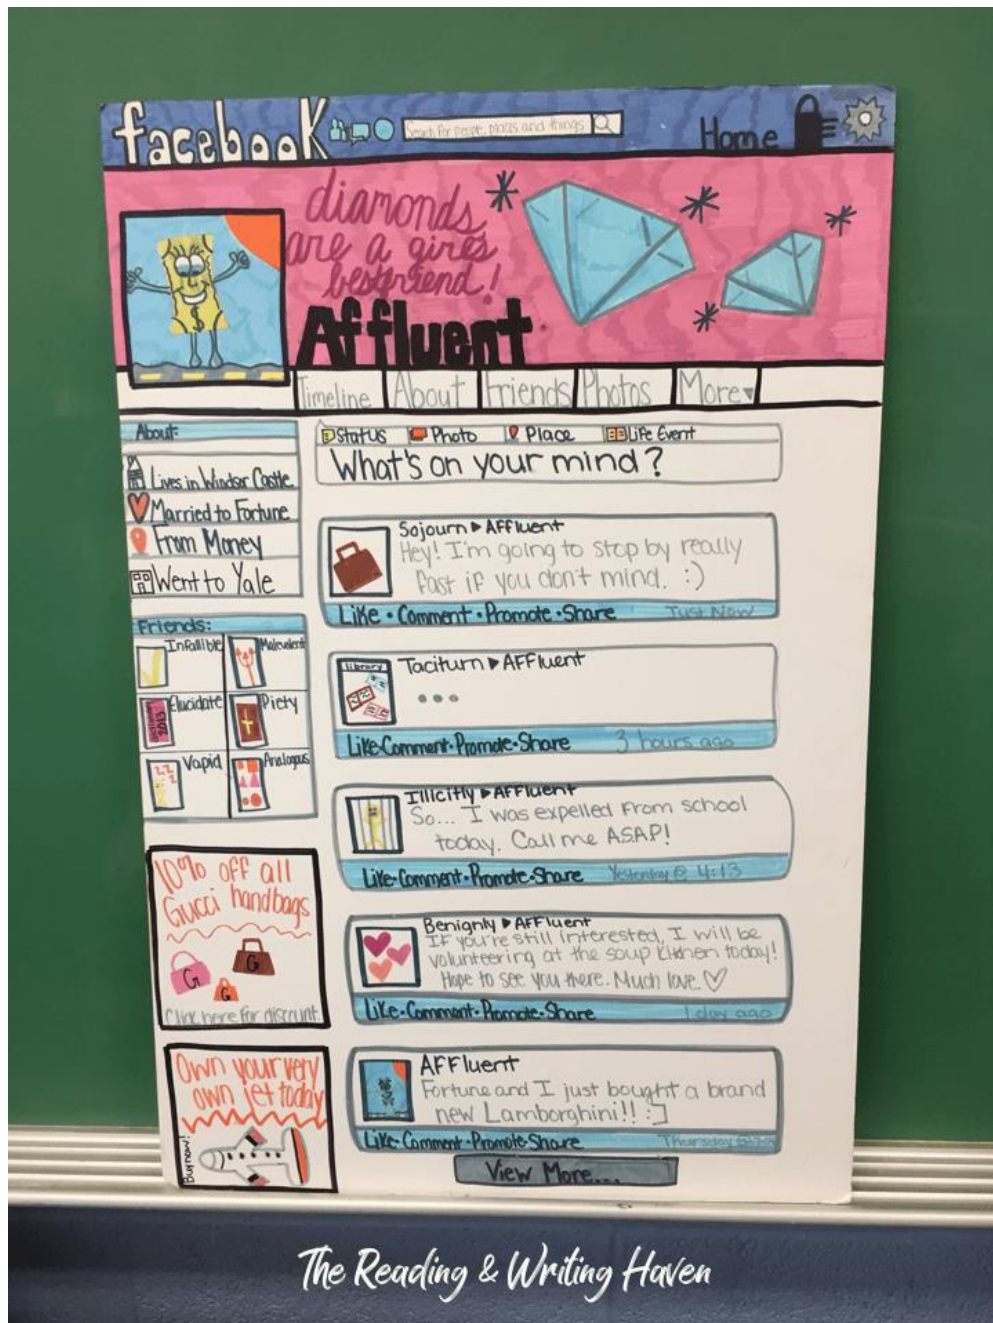 facebook
Search for people, places and things
Home
diamonds
are a girl's
bestfriend!
Affluent
Timeline
About
Friends
Photos
More
About:
Lives in Windsor Castle
Married to Fortune
From Money
Went to Yale
Friends:
Infallible
Malevolent
Elucidate
Piety
Vapid
Analogous
10% off all
Gucci handbags
G
G
G
Click here for discount
Own your very
own jet today
Buy now!
Status
Photo
Place
Life Event
What's on your mind?
Sojourn ▶ Affluent
Hey! I'm going to stop by really
fast if you don't mind. :)
Like • Comment • Promote • Share
Just Now
library
Taciturn ▶ Affluent
...
Like • Comment • Promote • Share
3 hours ago
Illicitly ▶ Affluent
So... I was expelled from school
today. Call me ASAP!
Like • Comment • Promote • Share
Yesterday @ 4:13
Benignly ▶ Affluent
If you're still interested, I will be
volunteering at the soup kitchen today!
Hope to see you there. Much love. ♡
Like • Comment • Promote • Share
1 day ago
Affluent
Fortune and I just bought a brand
new Lamborghini!! :]
Like • Comment • Promote • Share
Thursday
View More...
The Reading & Writing Haven